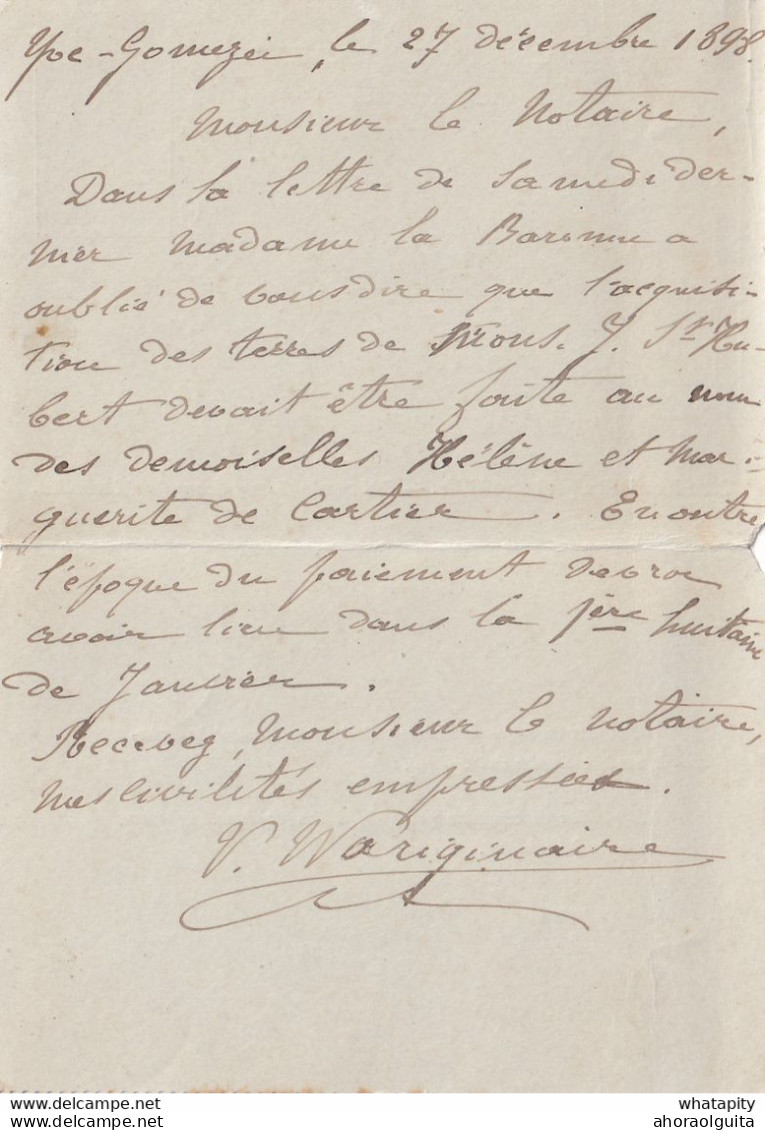 Yve-Gomezée, le 27 décembre 1898.
Monsieur le Notaire,
Dans sa lettre de samedi der-
nier madame la Baronne a
oublié de vous dire que l'acquisi-
tion des terres de Mons. J. St Hu-
bert devait être faite au nom
des demoiselles Hélène et Mar-
guerite de Cartier. En outre
l'époque du paiement devra
avoir lieu dans la 1ère huitaine
de Janvier.
Recevez, Monsieur le notaire,
mes civilités empressées.
V. Wariginaire
whatapity
ahoraolguita